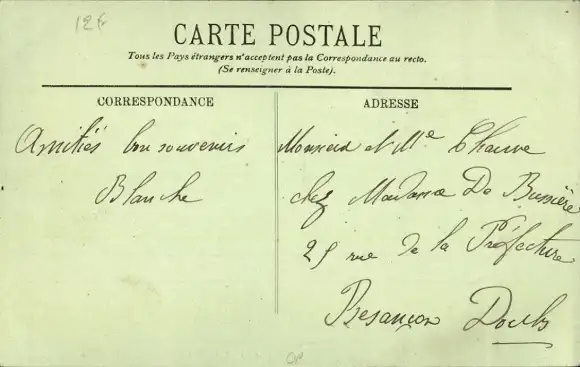 12F
CARTE POSTALE
Tous les Pays étrangers n'acceptent pas la Correspondance au recto.
(Se renseigner à la Poste).
CORRESPONDANCE
Amitiés bon souvenirs
Blanche
ADRESSE
Monsieur et Me Chauve
chez Madame De Bussière
25 rue de la Préfecture
Besançon Doubs